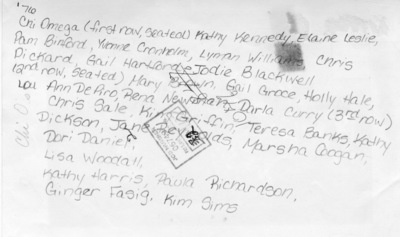 '76
Chi Omega (first row, seated) Kathy Kennedy, Elaine Leslie,
Pam Binford, Yvonne Cronholm, Lyman Williams, Chris
Dickard, Gail Hartland, Jodie Blackwell
(2nd row, seated) Mary Gail Grace, Holly Hale,
Lou Ann DeAro, Rena Newman, Darla Curry (3rd row)
Chris Sale, Kim Griffin, Teresa Banks, Kathy
Dickson, Jane Marsha Coogan,
Dori Daniel,
Lisa Woodall,
Kathy Harris, Paula Richardson,
Ginger Fasig, Kim Sims
Chi O